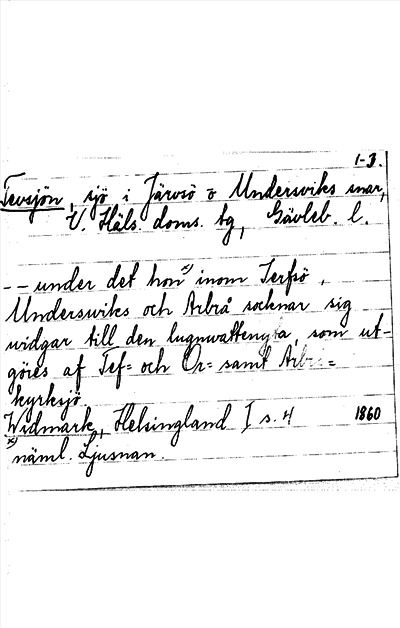 1-3.
Tevsjön, sjö i Järvsö o Undersviks snar,
V. Häls. doms. tg, Gävleb. l.
-- under det hon x) inom Jerfsö,
Undersviks och Arbrå socknar sig
widgar till den lugnwattenyta, som ut-
göres af Tef= och Or= samt Arbrå=
kyrksjö.
Widmark, Helsingland I s. 4 1860
x) näml. Ljusnan.